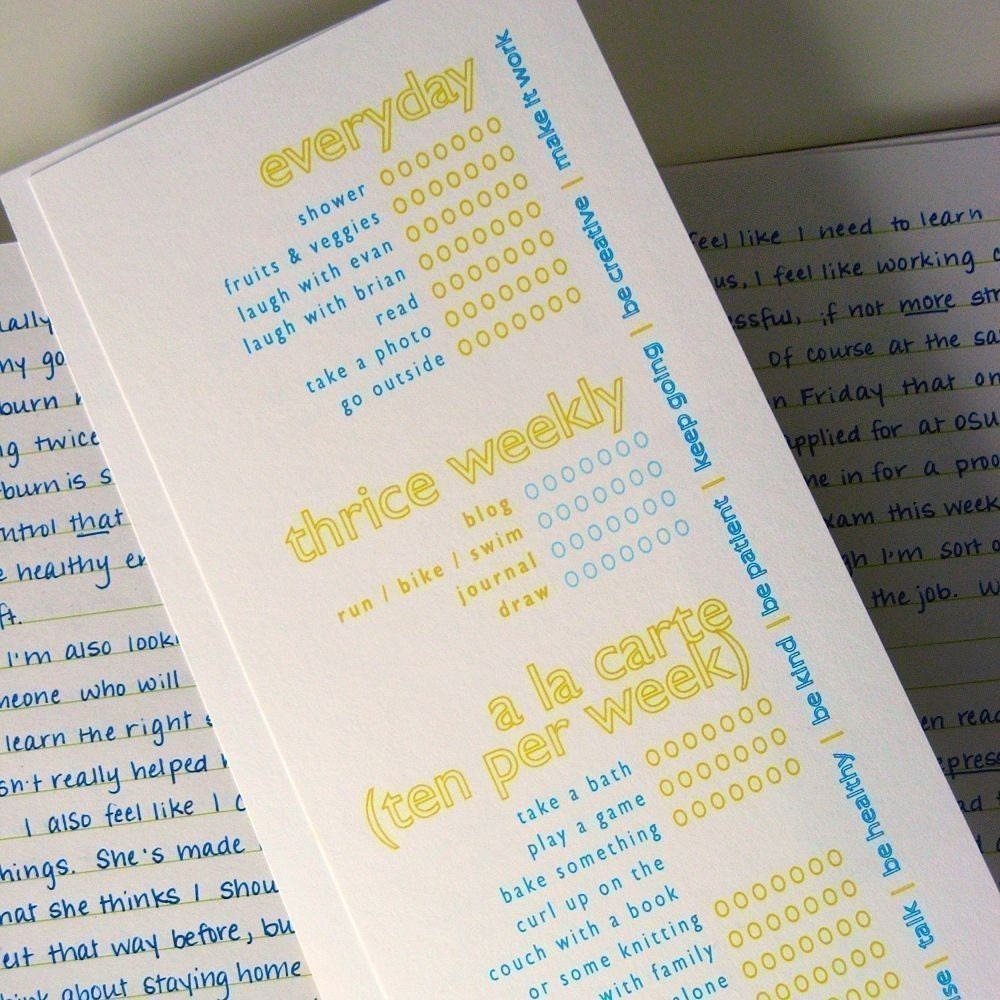 everyday
shower
fruits & veggies
laugh with evan
laugh with brian
read
take a photo
go outside
thrice weekly
blog
run / bike / swim
journal
draw
a la carte
(ten per week)
take a bath
play a game
bake something
curl up on the
couch with a book
or some knitting
with family
alone
talk | be healthy | be kind | be patient | keep going | be creative | make it work
my go
burn
twice
burn is
that
healthy
I'm also
who will
learn the right
really helped
I also feel like I
things. She's made
she thinks I
that way before,
about staying home
feel like I need to learn
I feel like working
if not more
of course at the
Friday that
applied for at OSU
in for a
this week
I'm sort
the job.